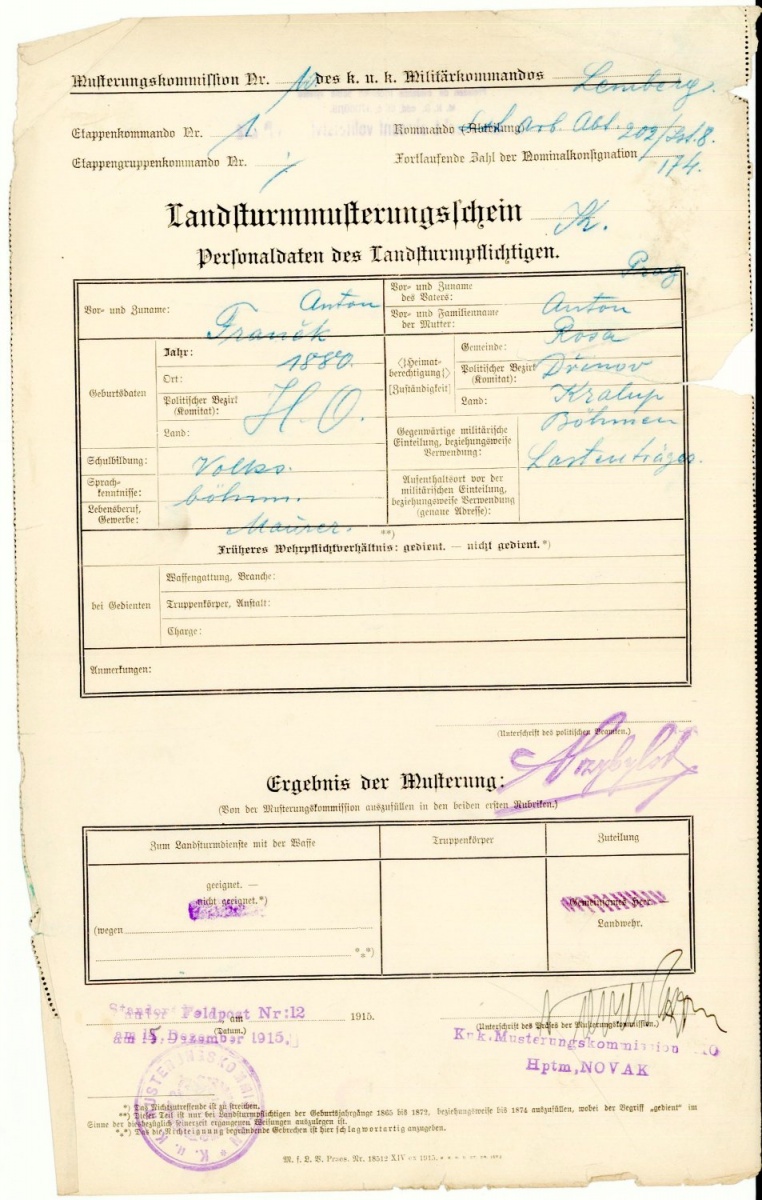 Musterungskommission Nr. 10. des k. u. k. Militärkommandos Lemberg.
Etappenkommando Nr. Kommando (Abteilung) Arb. Abt. 202/
Etappengruppenkommando Nr. Fortlaufende Zahl der Nominalkonsignation 174.
Landsturmmusterungsschein K.
Personaldaten des Landsturmpflichtigen.
Prag.
Vor- und Zuname: Anton
Vor- und Zuname des Vaters: Anton
Vor- und Familienname der Mutter: Rosa
Geburtsdaten
Jahr: 1880.
Ort: H. O.
Politischer Bezirk (Komitat):
Land:
Heimat-
berechtigung
[Zuständigkeit]
Gemeinde: Dřinov
Politischer Bezirk (Komitat): Kralup
Land: Böhmen
Schulbildung: Volkss.
Sprach-
kenntnisse: böhm.
Lebensberuf,
Gewerbe: Maurer.
Gegenwärtige militärische
Einteilung, beziehungsweise
Verwendung: Lastenträger.
Aufenthaltsort vor der
militärischen Einteilung,
beziehungsweise Verwendung
(genaue Adresse):
**)
Früheres Wehrpflichtverhältnis: gedient. — nicht gedient.*)
bei Gedienten
Waffengattung, Branche:
Truppenkörper, Anstalt:
Charge:
Anmerkungen:
(Unterschrift des politischen Beamten.)
Ergebnis der Musterung:
(Von der Musterungskommission auszufüllen in den beiden ersten Rubriken.)
Zum Landsturmdienste mit der Waffe
Truppenkörper
Zuteilung
geeignet. —
nicht geeignet.*)
(wegen
*.*)
Gemeinsames Heer —
Landwehr.
Feldpost Nr:12
am 1915.
(Datum.)
am 15 Dezember 1915.
(Unterschrift des Präses der Musterungskommission.)
K.u.k. Musterungskommission No 10
Hptm, NOVAK
*) Das Nichtzutreffende ist zu streichen.
**) Dieser Teil ist nur bei Landsturmpflichtigen der Geburtsjahrgänge 1865 bis 1872, beziehungsweise bis 1874 auszufüllen, wobei der Begriff „gedient" im
Sinne der diesbezüglich seinerzeit ergangenen Weisungen auszulegen ist.
*.*) Das die Nichteignung begründende Gebrechen ist hier schlagwortartig anzugeben.
M. f. L. V. Praes. Nr. 18512 XIV ex 1915.